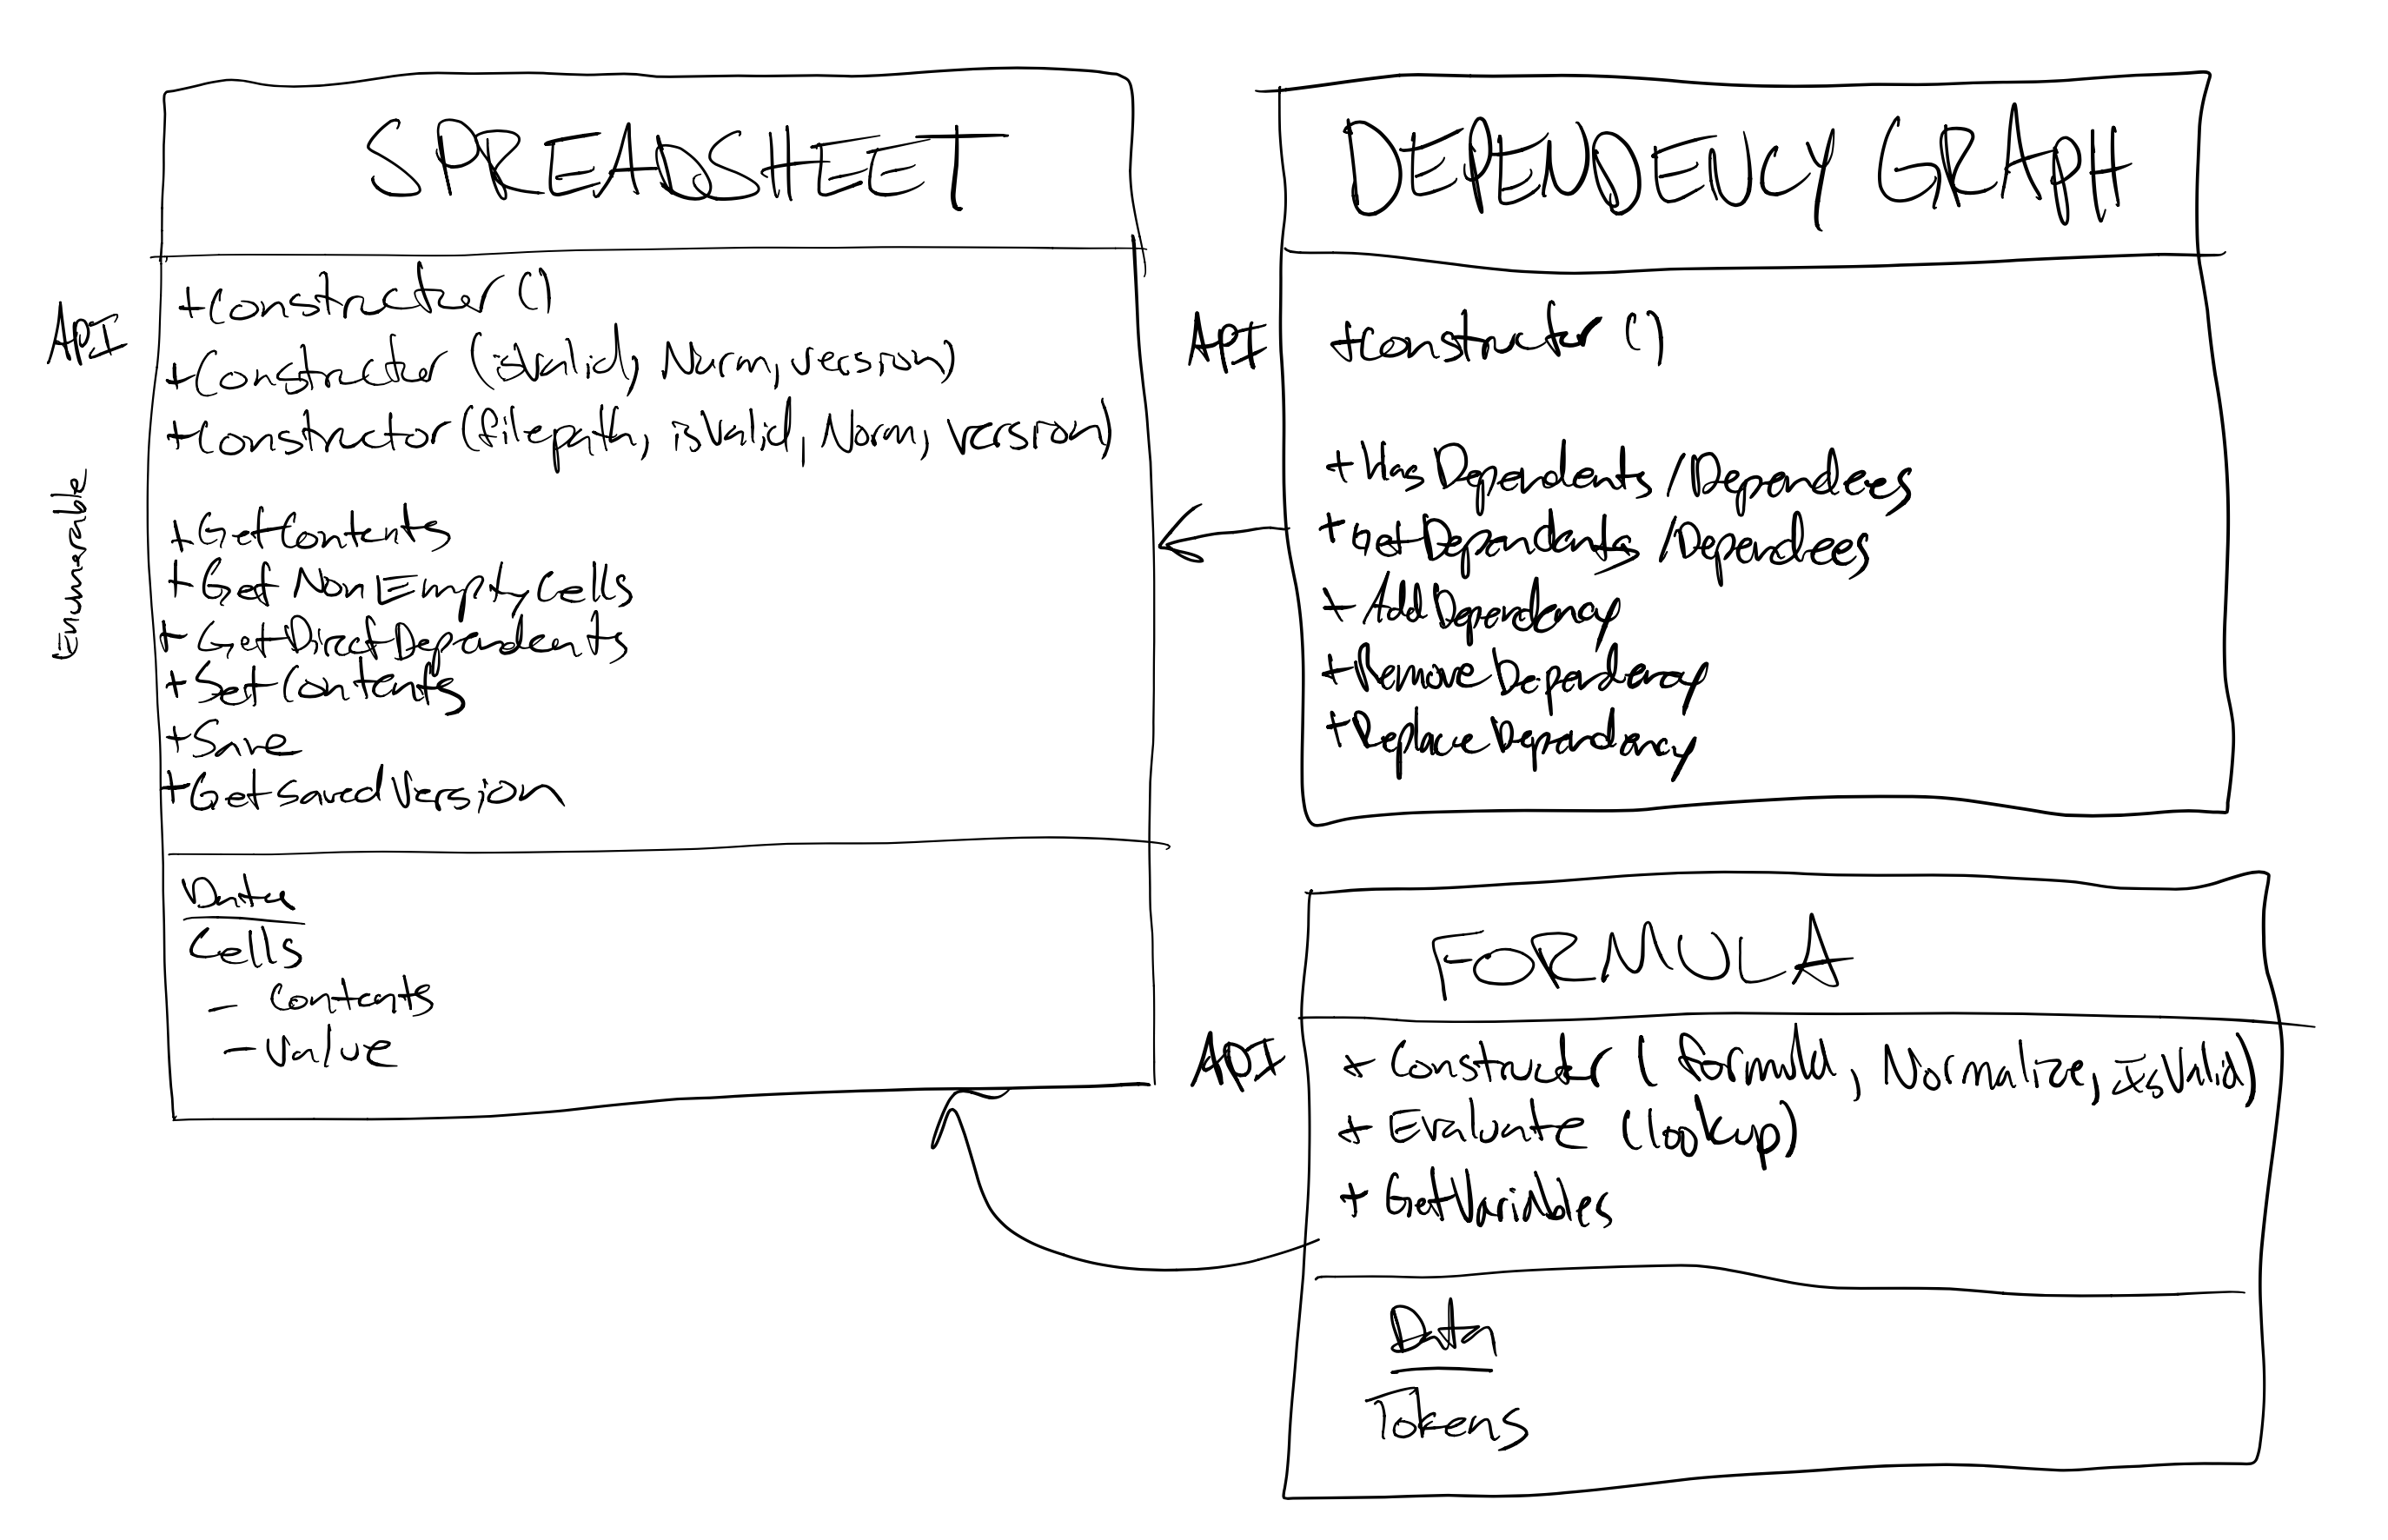 SPREADSHEET
API
+Constructor ()
+Constructor (isValid, Norm, version)
+Constructor (filepath, isValid, Norm, version)
Enumerable
+GetContents
+Get NonEmptyCells
+GetDirectDependents
+SetContents
+Save
+GetsavedVersion
Data
Cells
- Contents
- Value
DEPENDENCY GRAPH
API
+Constructor ()
+Has Dependents /Dependees
+getDependants /Dependees
+AddDependency
+RemoveDependency
+ReplaceDependency
FORMULA
API
+ Constructor (formula, Normalize, isValid)
+ Evaluate (lookup)
+ GetVariables
Data
Tokens